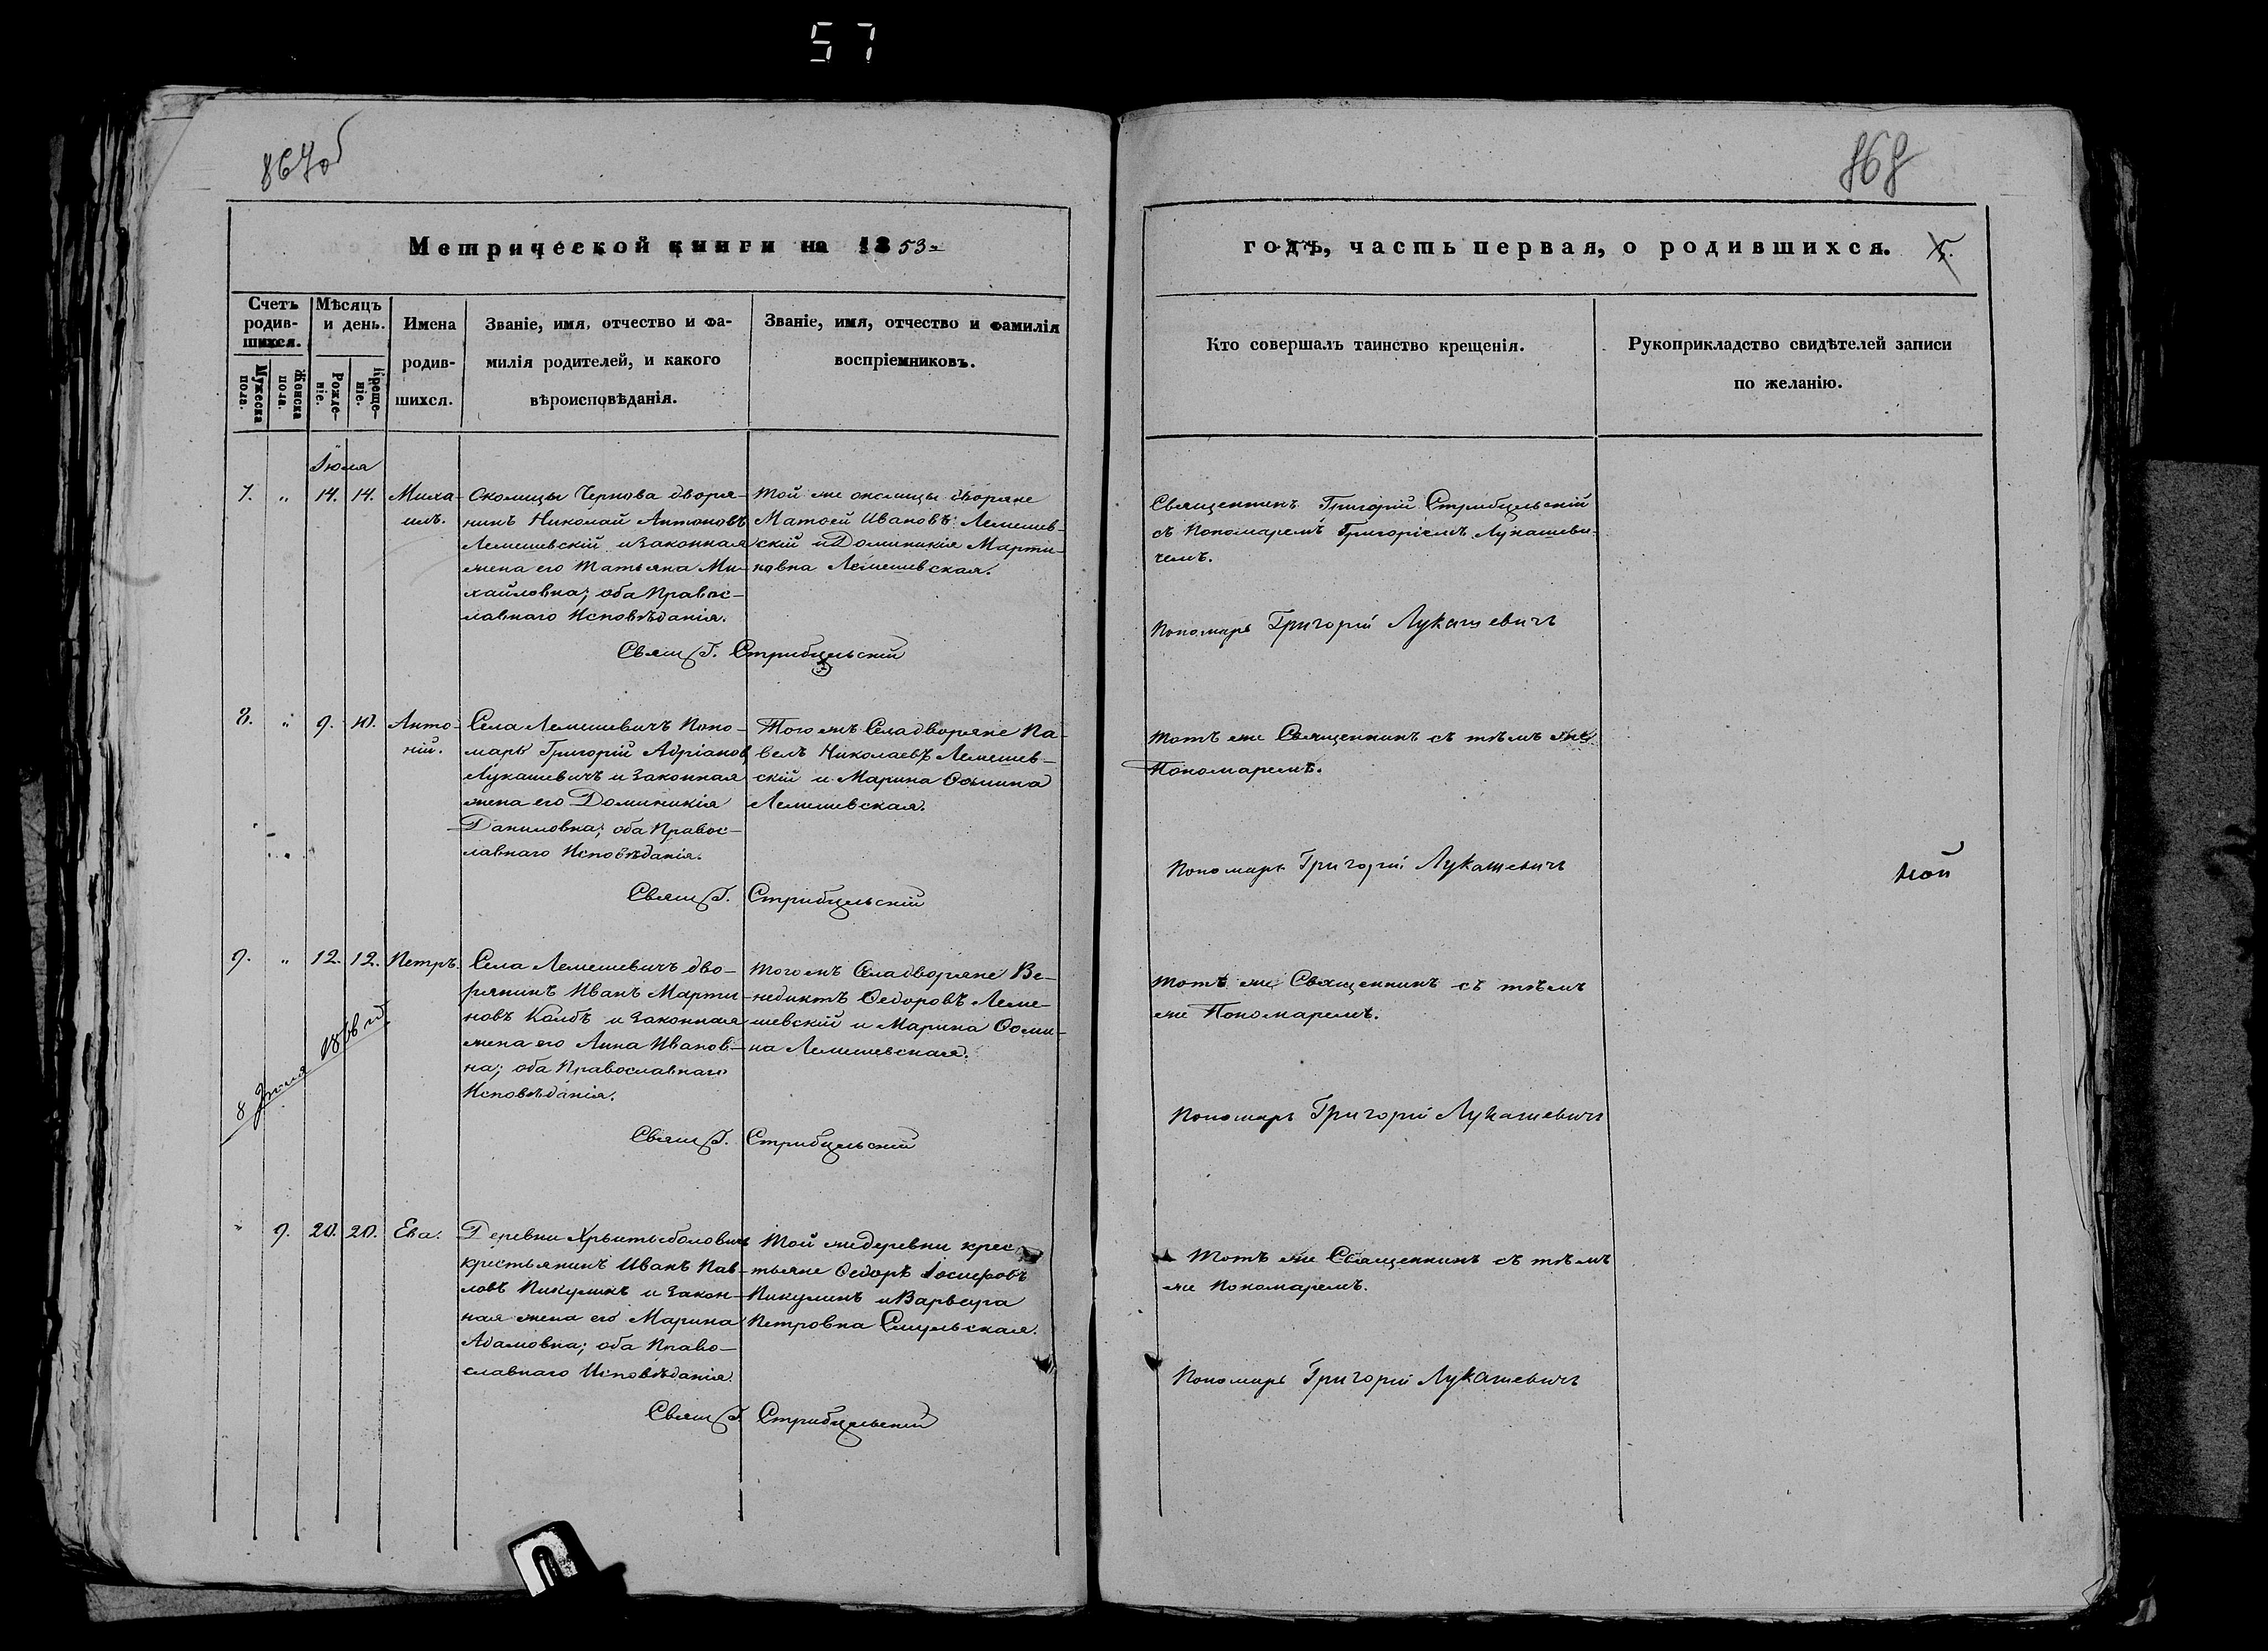 57
867об
868
Метрической книги на 1853
годъ, часть первая, о родившихся. 5.
Счетъ родив-
шихся.
Мужеска пола.
Женска пола.
Мѣсяцъ и день.
Рожде-
ніе.
Креще-
ніе.
Имена
родив-
шихся.
Званіе, имя, отчество и фа-
милія родителей, и какого
вѣроисповѣданія.
Званіе, имя, отчество и фамилія
воспріемниковъ.
Кто совершалъ таинство крещенія.
Рукоприкладство свидѣтелей записи
по желанію.
Іюля
7. " 14. 14. Миха-
илъ.
Околицы Чернова дворя-
нинъ Николай Антоновъ
Лемешевскій и законная
жена его Татьяна Ми-
хайловна; оба Правос-
лавнаго Исповѣданія.
Той же околицы дворяне
Матѳей Ивановъ Лемешев-
скій и Доминикія Марти-
новна Лемешевская.
Свящ. Г. Стрибульскій
Священникъ Григорій Стрибульскій
съ Пономаремъ Григоріемъ Лукашеви-
чемъ.
Пономарь Григорій Лукашевичъ
8. " 9. 10. Анто-
ній.
Села Лемешевичъ Поно-
марь Григорій Адріановъ
Лукашевичъ и законная
жена его Доминикія
Даниловна; оба Правос-
лавнаго Исповѣданія.
Того жъ Села дворяне Па-
велъ Николаевъ Лемешев-
скій и Марина Ѳомина
Лемешевская.
Свящ. Г. Стрибульскій
Тотъ же Священникъ съ тѣмъ же
Пономаремъ.
Пономарь Григорій Лукашевичъ
мой
9. " 12. 12. Петръ.
Села Лемешевичъ дво-
рянинъ Иванъ Марти-
новъ Колбъ и законная
жена его Анна Иванов-
на; оба Православнаго
Исповѣданія.
Того жъ Села дворяне Ве-
недиктъ Ѳедоровъ Леме-
шевскій и Марина Ѳоми-
на Лемешевская.
Свящ. Г. Стрибульскій
Тотъ же Священникъ съ тѣмъ
же Пономаремъ.
Пономарь Григорій Лукашевичъ
" 9. 20. 20. Ева.
Деревни
крестьянинъ Иванъ Пав-
ловъ Пикулинъ и закон-
ная жена его Марина
Адамовна; оба Право-
славнаго Исповѣданія.
Той же деревни крес-
тьяне Ѳедоръ Іосифовъ
Пикулинъ и Варвара
Петровна Смульская.
Свящ. Г. Стрибульскій
Тотъ же Священникъ съ тѣмъ
же Пономаремъ.
Пономарь Григорій Лукашевичъ